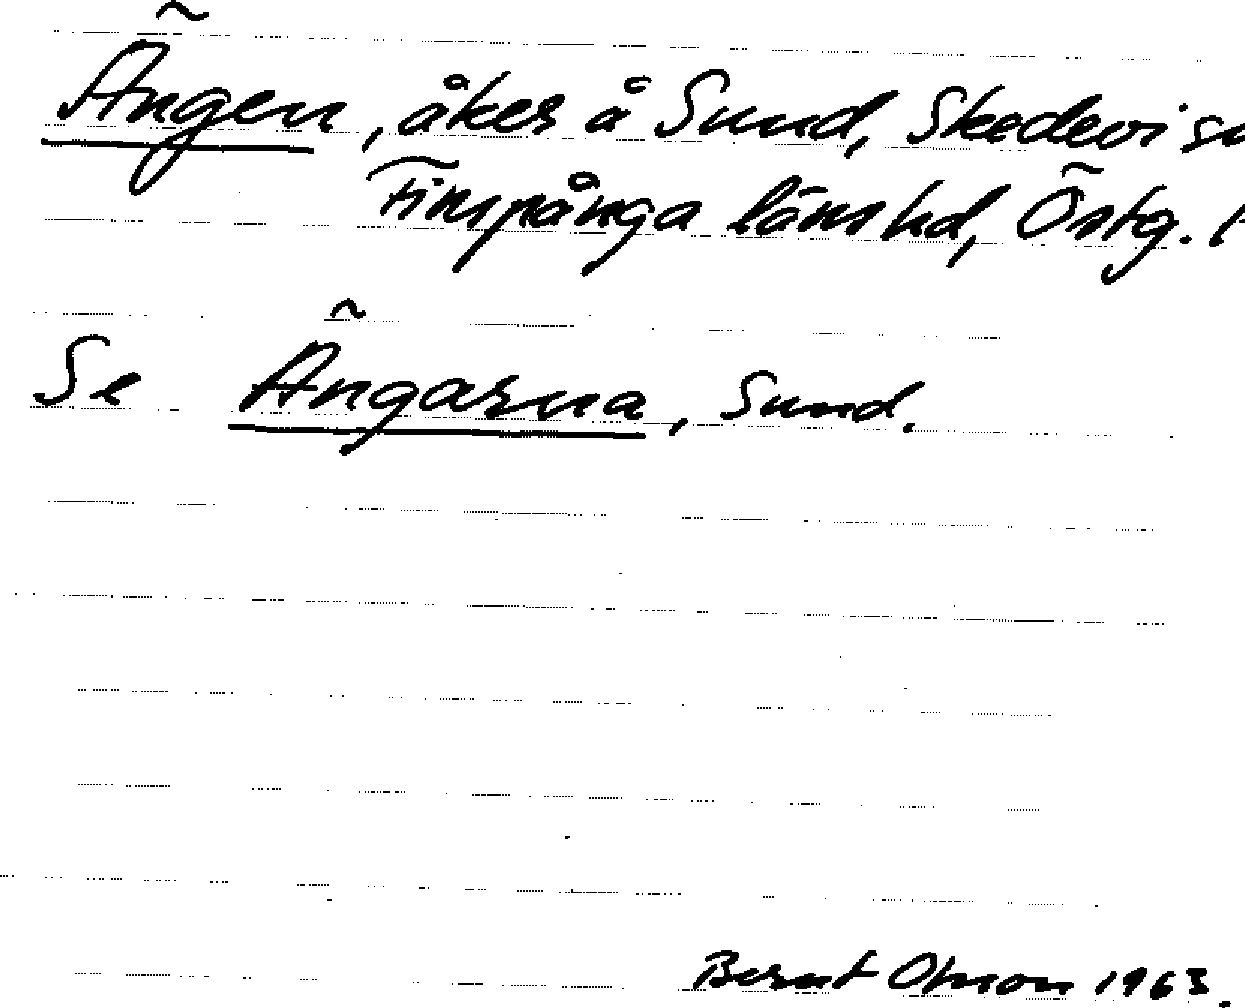 Ängen, åker å Sund, Skedevi s
Finspånga länshd, Östg.
Se Ängarna, Sund.
Bernt Olsson 1963.